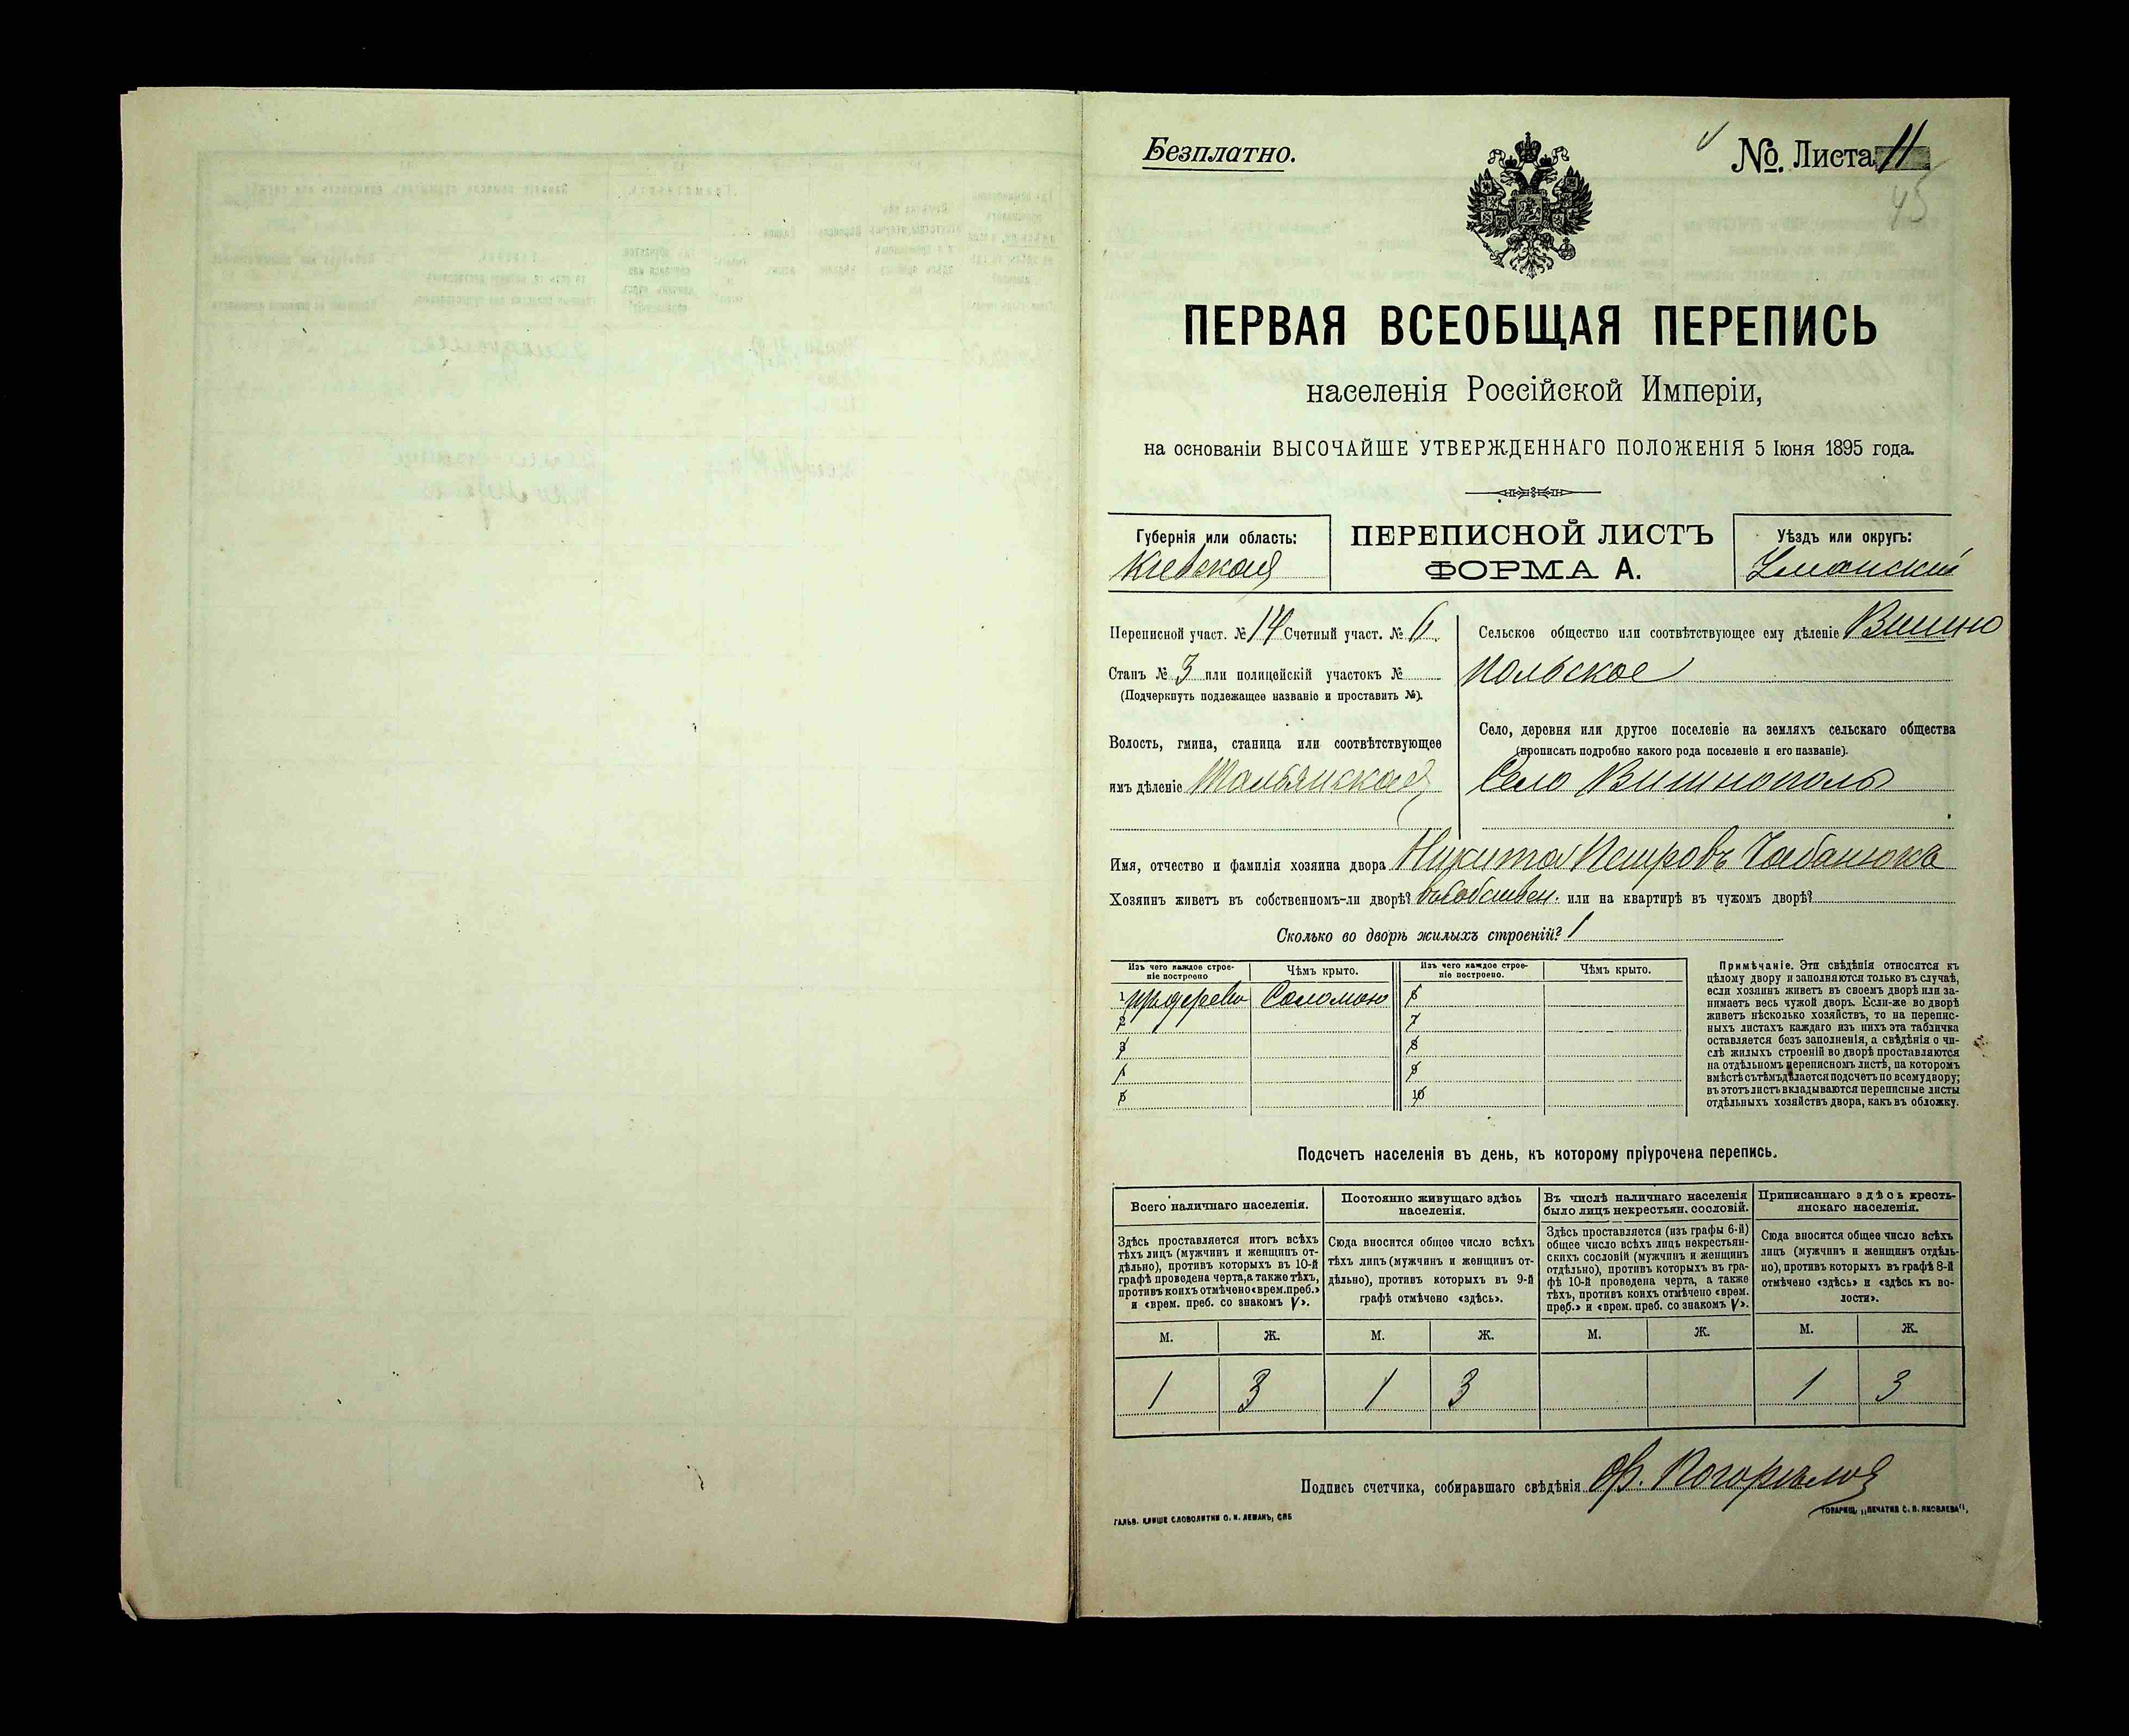 Безплатно.
№ Листа 11
45
ПЕРВАЯ ВСЕОБЩАЯ ПЕРЕПИСЬ
населенія Россійской Имперіи,
на основаніи ВЫСОЧАЙШЕ УТВЕРЖДЕННАГО ПОЛОЖЕНІЯ 5 Іюня 1895 года.
Губернія или область:
Кіевская
ПЕРЕПИСНОЙ ЛИСТЪ
ФОРМА А.
Уѣздъ или округъ:
Уманскій
Переписной участ. № 14 Счетный участ. № 6
Станъ № 3 или полицейскій участокъ №
(Подчеркнуть подлежащее названіе и проставить №).
Волость, гмина, станица или соотвѣтствующее
имъ дѣленіе Тальянская
Сельское общество или соотвѣтствующее ему дѣленіе Вишно
польское
Село, деревня или другое поселеніе на земляхъ сельскаго общества
(прописать подробно какого рода поселеніе и его названіе).
Село Вишнополь
Имя, отчество и фамилія хозяина двора Никита Петровъ Чабанюкъ
Хозяинъ живетъ въ собственномъ-ли дворѣ? въ собствен. или на квартирѣ въ чужомъ дворѣ?
Сколько во дворѣ жилыхъ строеній? 1
Изъ чего каждое строе-
ніе построено
Чѣмъ крыто.
Изъ чего каждое строе-
ніе построено.
Чѣмъ крыто.
1 Соломою 6
2 7
3 8
4 9
5 10
Примѣчаніе. Эти свѣдѣнія относятся къ
цѣлому двору и заполняются только въ случаѣ,
если хозяинъ живетъ въ своемъ дворѣ или за-
нимаетъ весь чужой дворъ. Если-же во дворѣ
живетъ нѣсколько хозяйствъ, то на перепис-
ныхъ листахъ каждаго изъ нихъ эта табличка
оставляется безъ заполненія, а свѣдѣнія о чи-
слѣ жилыхъ строеній во дворѣ проставляются
на отдѣльномъ переписномъ листѣ, на которомъ
вмѣстѣ съ тѣмъ дѣлается подсчетъ по всему двору;
въ этотъ листъ вкладываются переписные листы
отдѣльныхъ хозяйствъ двора, какъ въ обложку.
Подсчетъ населенія въ день, къ которому пріурочена перепись.
Всего наличнаго населенія.
Здѣсь проставляется итогъ всѣхъ
тѣхъ лицъ (мужчинъ и женщинъ от-
дѣльно), противъ которыхъ въ 10-й
графѣ проведена черта, а также тѣхъ,
противъ коихъ отмѣчено «врем. преб.»
и «врем. преб. со знакомъ V».
Постоянно живущаго здѣсь
населенія.
Сюда вносится общее число всѣхъ
тѣхъ лицъ (мужчинъ и женщинъ от-
дѣльно), противъ которыхъ въ 9-й
графѣ отмѣчено «здѣсь».
Въ числѣ наличнаго населенія
было лицъ некрестьян. сословій.
Здѣсь проставляется (изъ графы 6-й)
общее число всѣхъ лицъ некрестьян-
скихъ сословій (мужчинъ и женщинъ
отдѣльно), противъ которыхъ въ гра-
фѣ 10-й проведена черта, а также
тѣхъ, противъ коихъ отмѣчено «врем.
преб.» и «врем. преб. со знакомъ V».
Приписаннаго здѣсь кресть-
янскаго населенія.
Сюда вносится общее число всѣхъ
лицъ (мужчинъ и женщинъ отдѣль-
но), противъ которыхъ въ графѣ 8-й
отмѣчено «здѣсь» и «здѣсь къ во-
лости».
М. Ж. М. Ж. М. Ж. М. Ж.
1 3 1 3 1 3
Подпись счетчика, собиравшаго свѣдѣнія
ГАЛЬВ. КЛИШЕ СЛОВОЛИТНИ О. И. ЛЕМАНЪ, СПБ
ТОВАРИЩ. „ПЕЧАТНЯ С. П. ЯКОВЛЕВА",